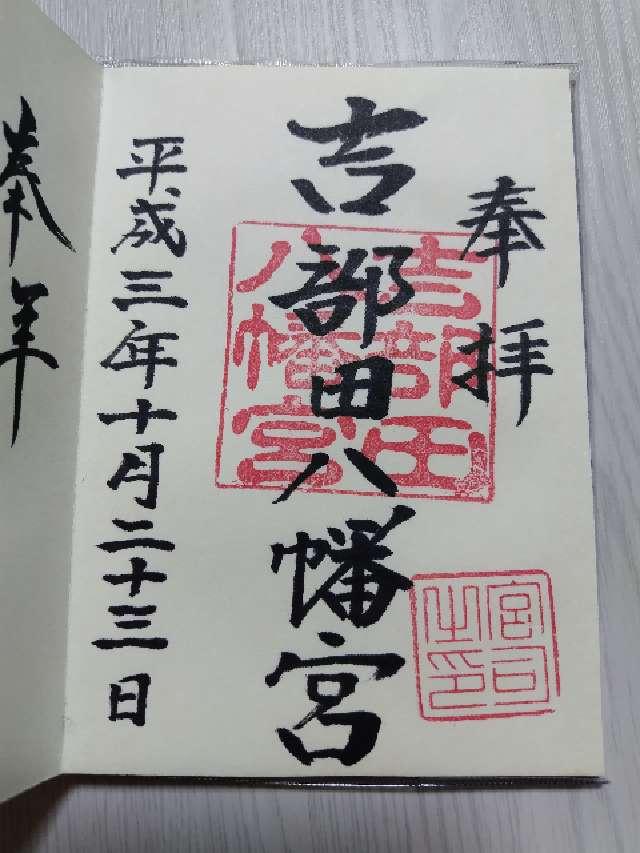 奉拝
吉部田八幡宮
平成三年十月二十三日
吉部田
八幡宮
宮司
之印
奉
年